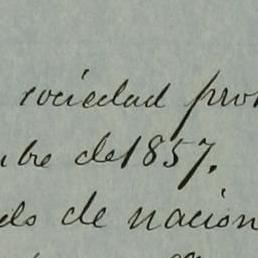 sociedad pro
bre de 1857.
de nacion